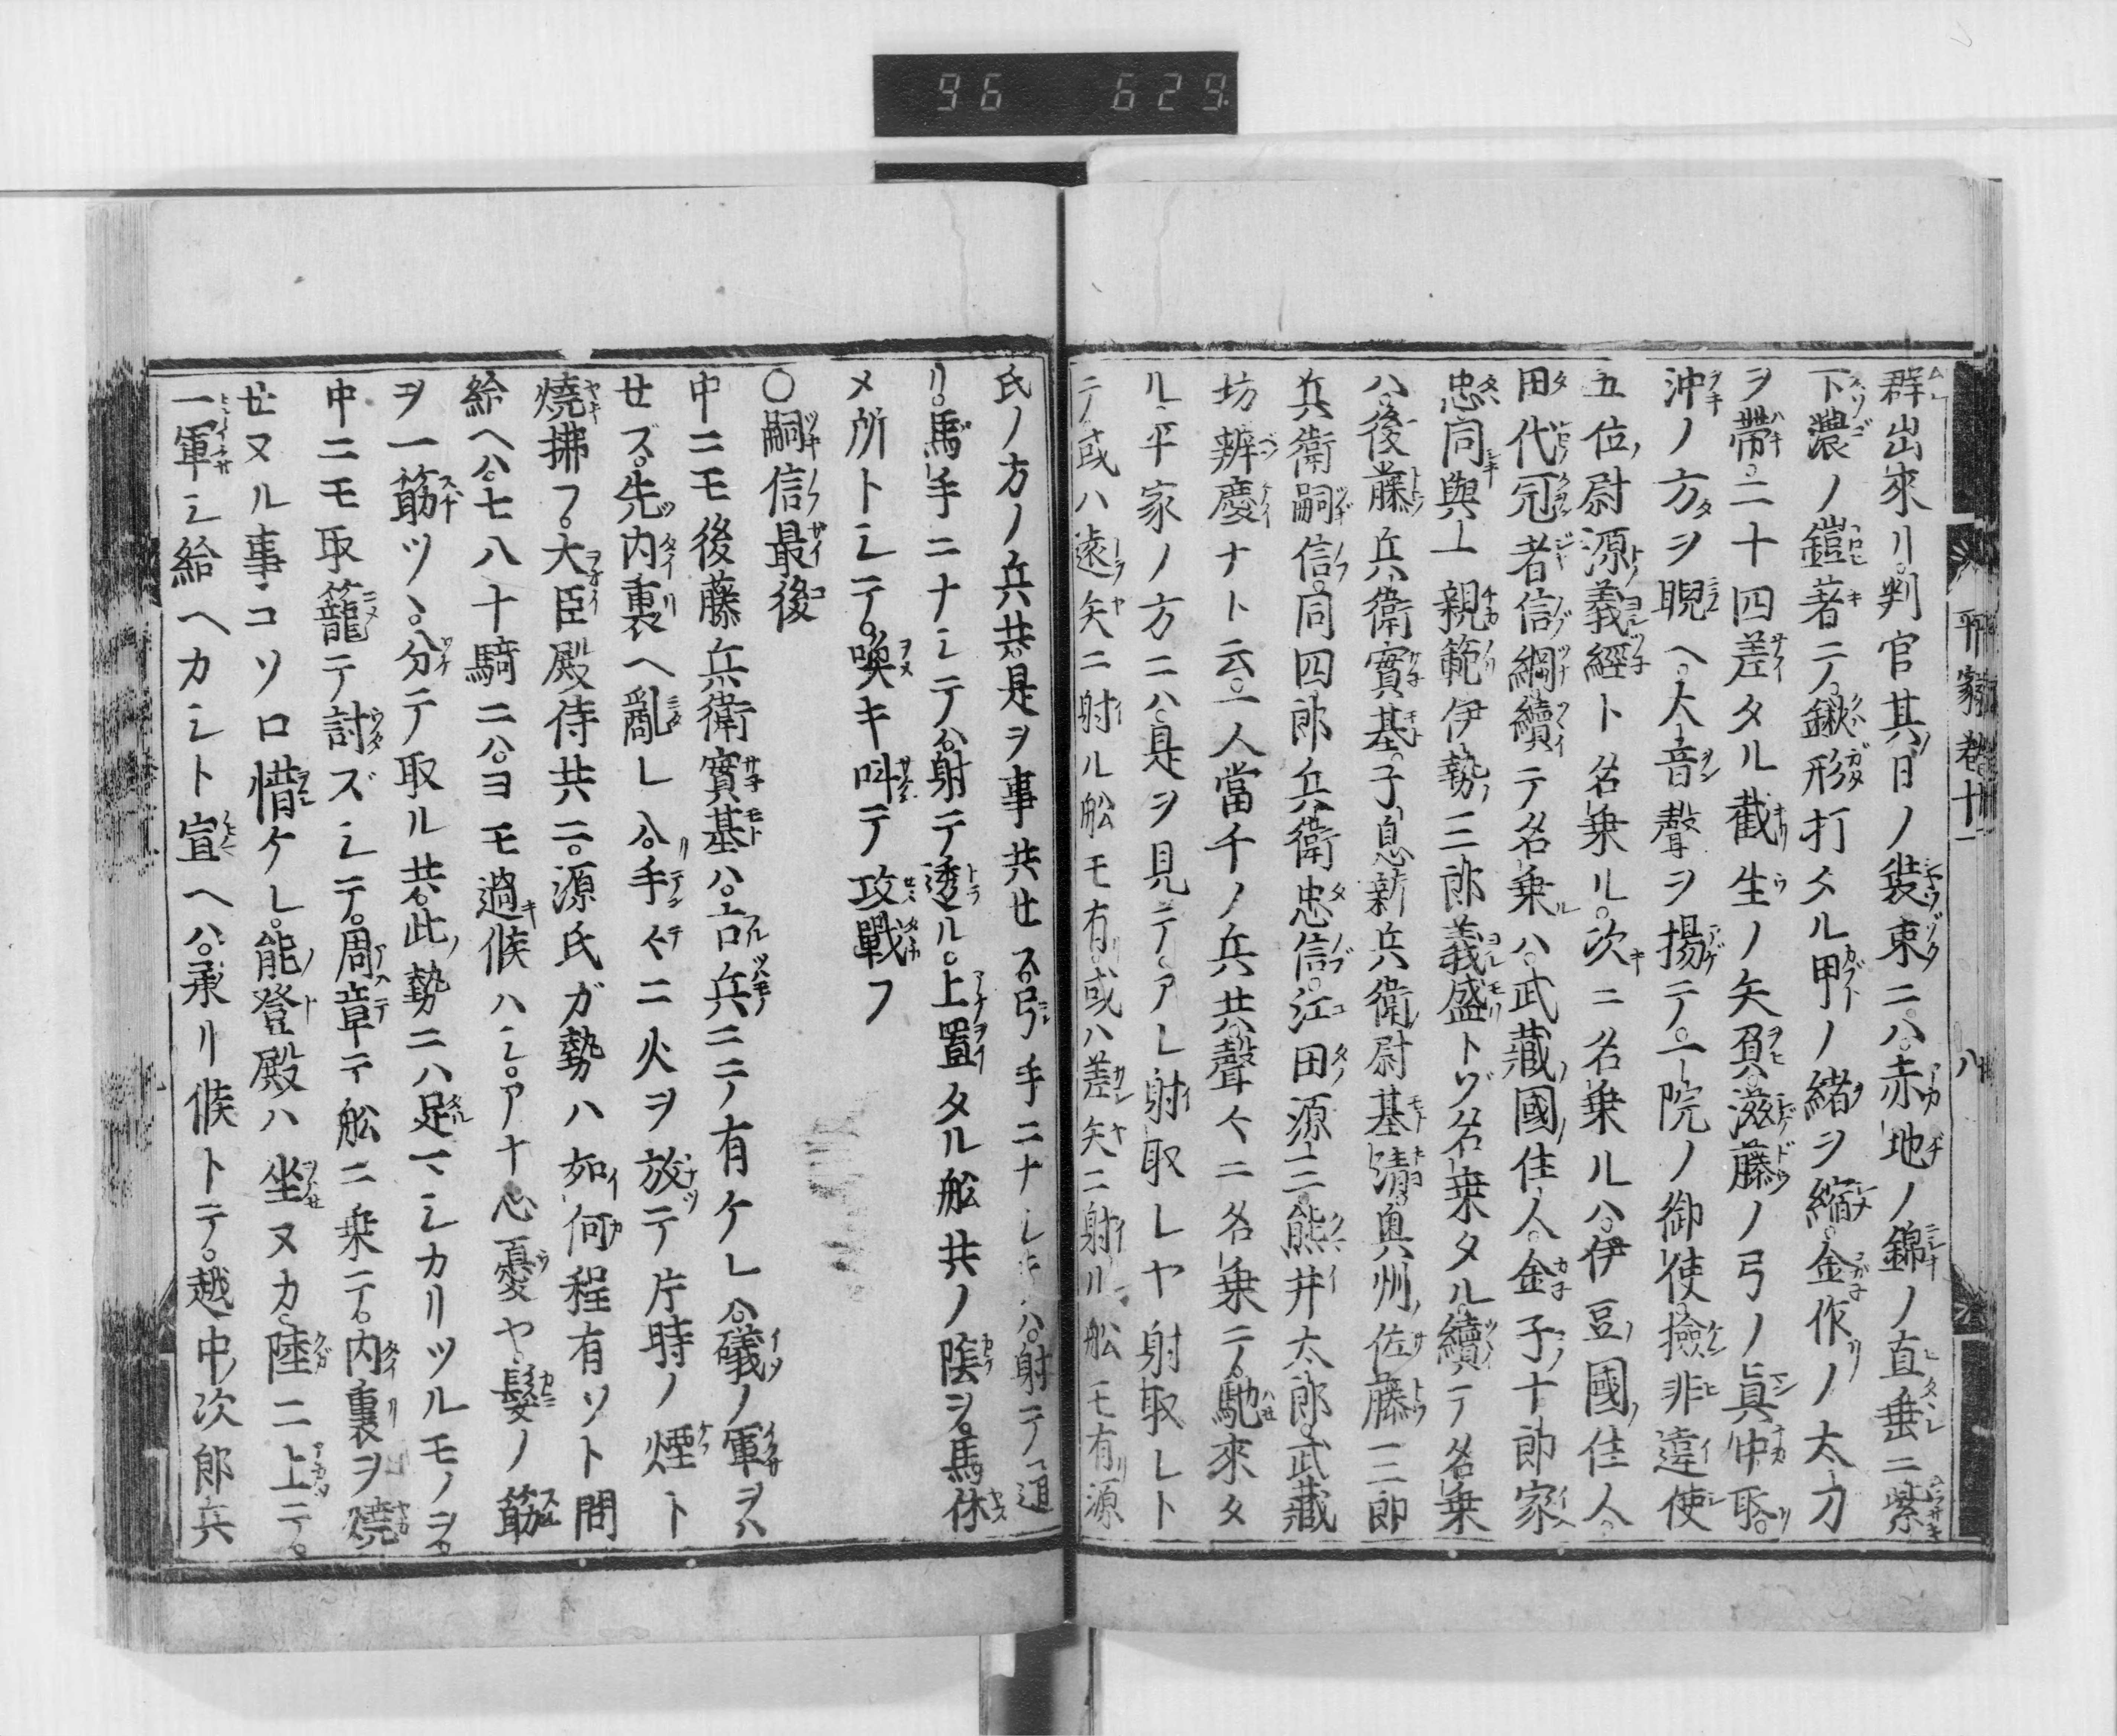 96 629
平家卷十一
八
群出來リ。判官其ノ日ノ裝束ニハ。赤地ノ錦ノ直垂ニ紫
下濃ノ鎧著テ。鍬形打タル甲ノ緒ヲ縮。金作ノ太刀
ヲ帶。二十四差タル截生ノ矢負。滋藤ノ弓ノ眞中取。
沖ノ方ヲ睨ヘ。大音聲ヲ揚テ。一院ノ御使。撿非違使
五位ノ尉源義經ト名乗ル。次ニ名乗ルハ。伊豆國ノ住人。
田代冠者信綱。續テ名乗ルハ。武藏ノ國ノ住人。金子ノ十郎家
忠。同與一親範。伊勢ノ三郎義盛トゾ名乗タル。續テ名乗
ハ。後藤兵衛實基。子息新兵衛尉基清。奥州ノ佐藤三郎
兵衛嗣信。同四郎兵衛忠信。江田ノ源三。熊井太郎。武藏
坊辨慶ナト云。一人當千ノ兵共。聲々ニ名乗テ。馳來タ
ル。平家ノ方ニハ。是ヲ見テ。アレ射取レヤ射取レト
テ。或ハ遠矢ニ射ル舩モ有。或ハ差矢ニ射ル舩モ有。源
氏ノ方ノ兵共。是ヲ事共セス。弓手ニナシテハ。射テノ通
リ。馬手ニナシテハ。射テ透ル。上置タル舩共ノ陰ヲ。馬休
メ所トシテ。喚キ叫テ攻戰フ
〇嗣信最後
中ニモ後藤兵衛實基ハ。古兵ニテ有ケレハ。礒ノ軍ヲハ
セズ。先内裏ヘ亂レ入。手々ニ火ヲ放テ片時ノ煙ト
燒拂フ。大臣殿侍共ニ。源氏ガ勢ハ如何程有ソト問
給ヘハ。七八十騎ニハ。ヨモ過候ハシ。アナ心憂ヤ。髮ノ筋
ヲ一筋ツヽ。分テ取ル共。此ノ勢ニハ足マシカリツルモノヲ。
中ニモ取籠テ討ズシテ。周章テ舩ニ乗テ。内裏ヲ燒
セヌル事コソ口惜ケレ。能登殿ハ坐ヌカ。陸ニ上テ。
一軍シ給ヘカシト宣ヘハ。承リ候トテ。越中ノ次郎兵